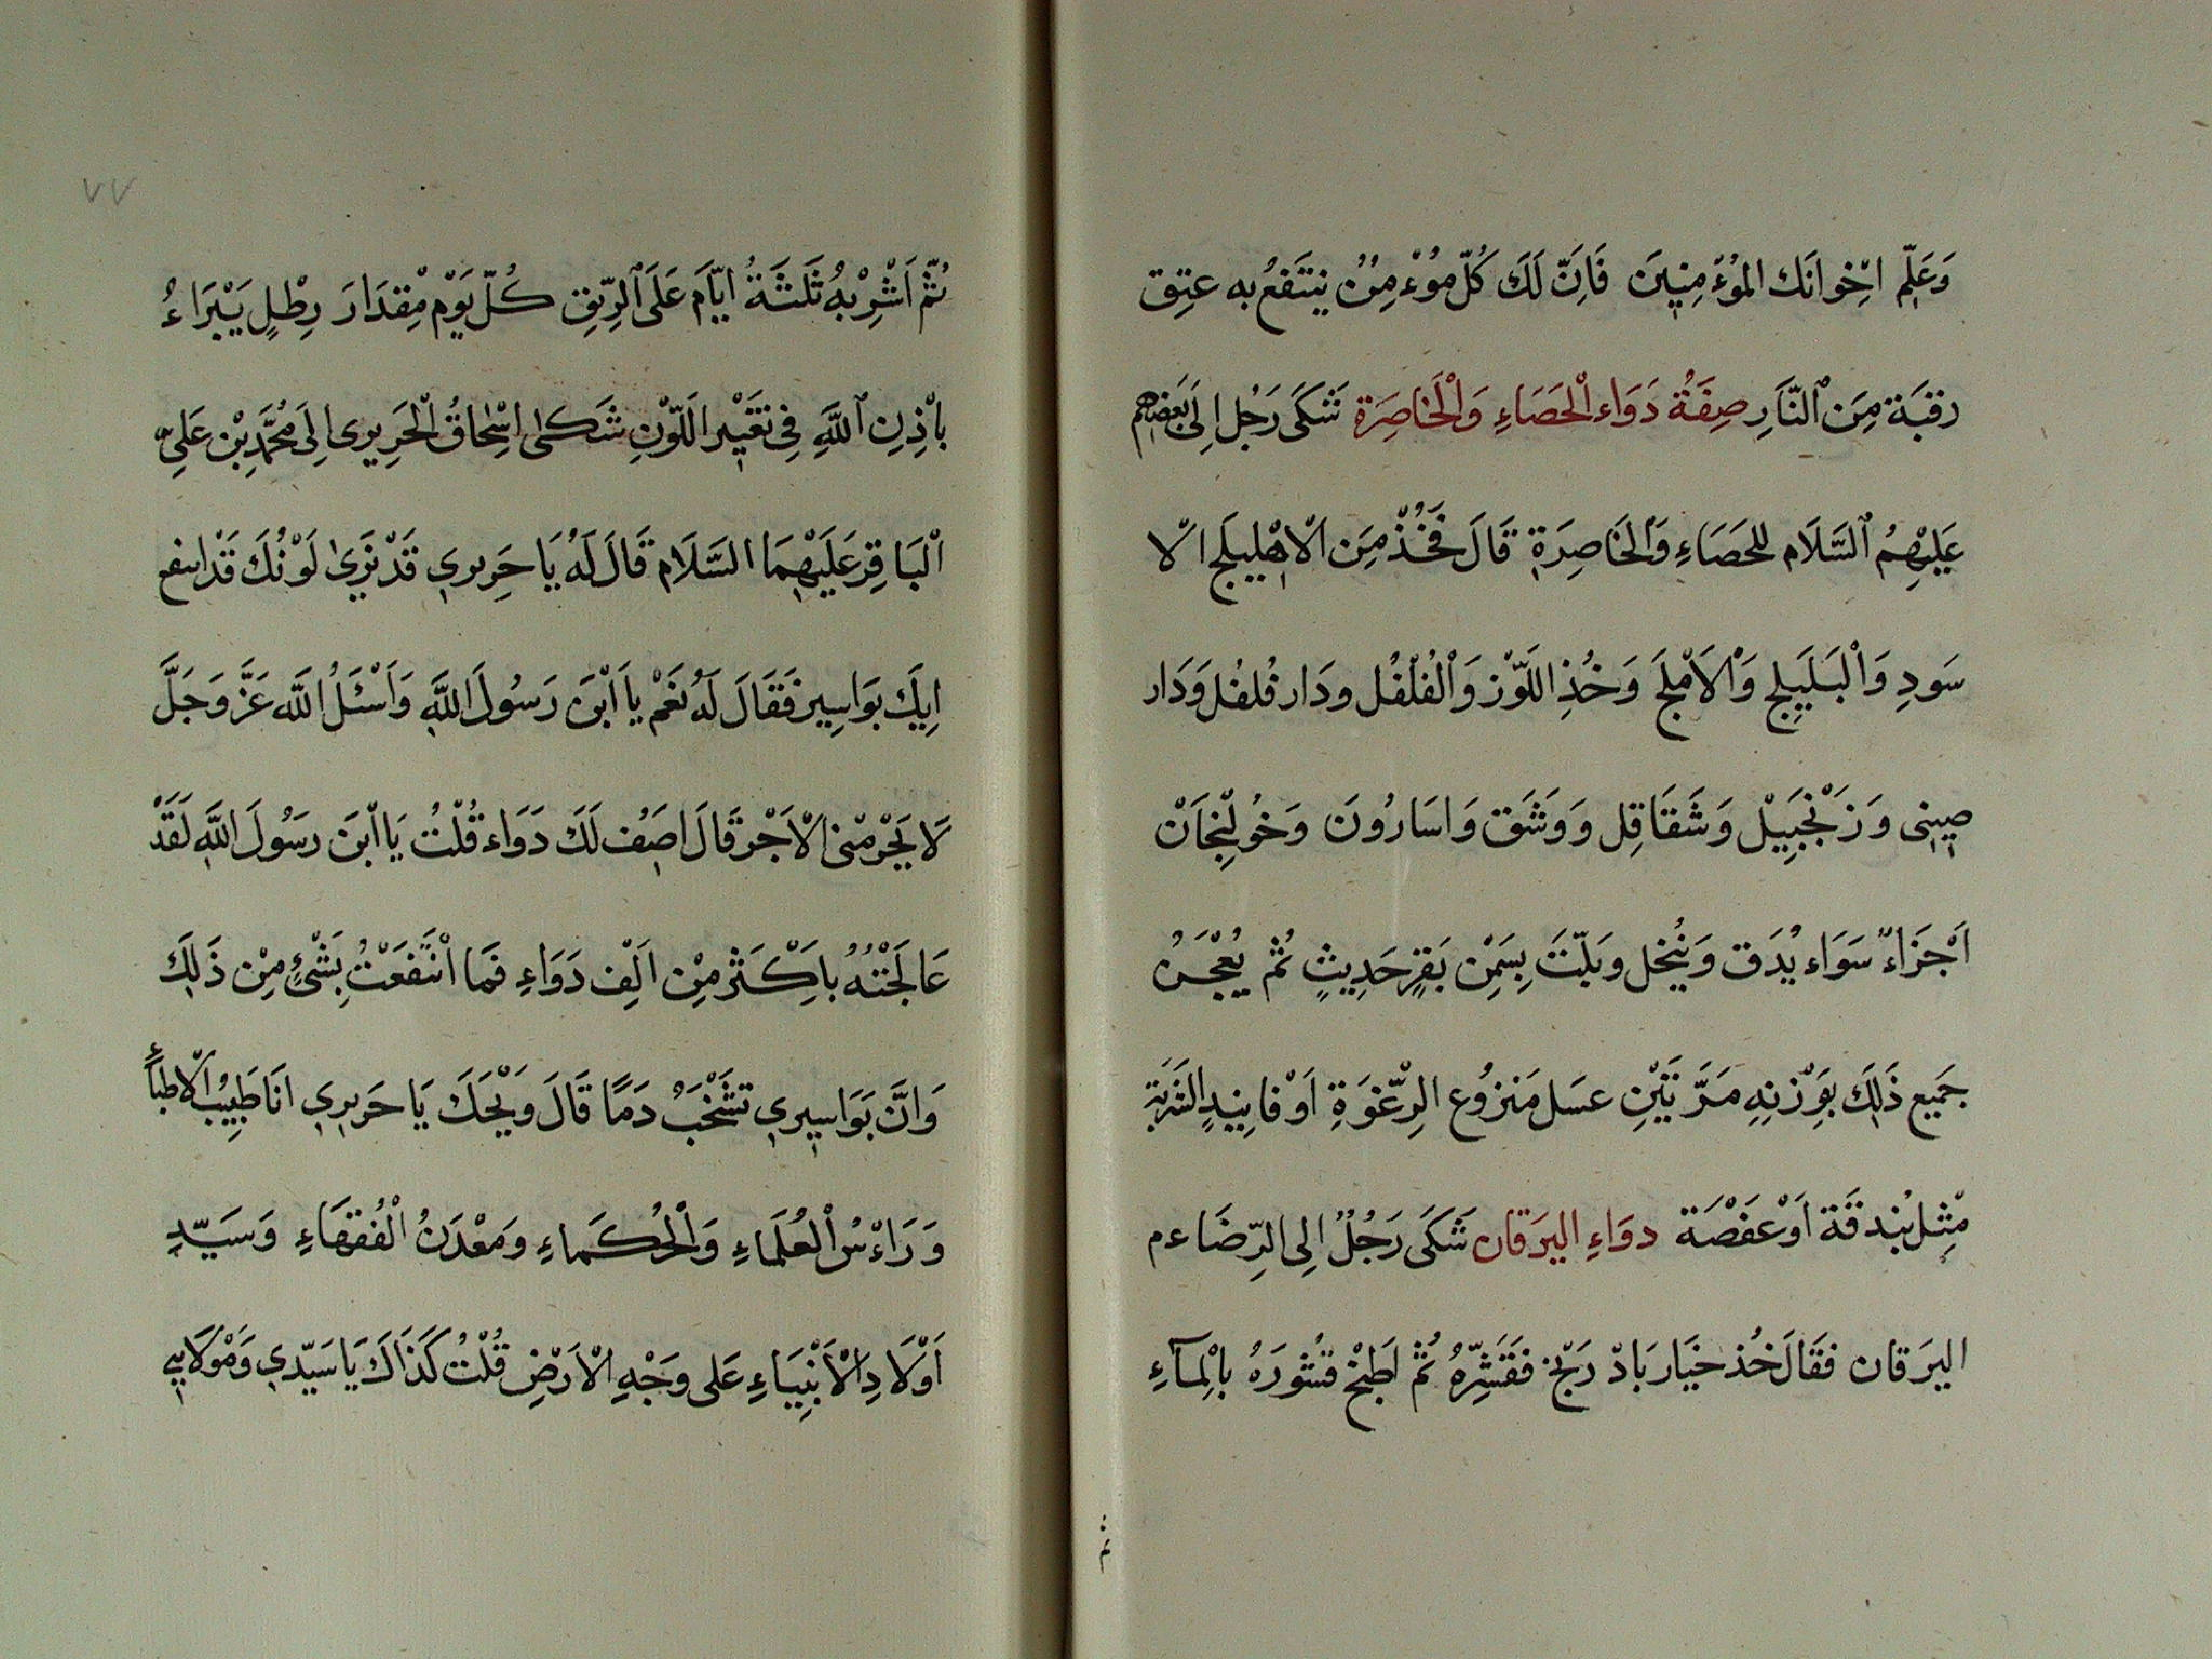 وَعَلِّم اِخْوانَك المُؤْمِنِينَ فَاِنَّ لَكَ كُلّ مُوْءمِنٌ يَنتَفعُ به عتِق
رقبَة مِنَ ٱلنَّارِ صِفَةُ دَوَاء اْلحَصَاءِ وَاْلخَاصِرَة شَكَى رَجُل اِلَى بَعضهِم
عَلَيْهِمُ ٱلسَّلَام للحَصَاءِ وَالخَاصِرَة قَالَ فَخُذْ مِنَ اْلاهْلِيلَج اْلا
سَودِ وَاْلبَلَيلِج وَاْلاَمْلَج وَخُذِ اللَّوْز وَاْلفُلْفُل ودَار فُلفُل وَدَار
صِينى وَزَنْجَبِيْل وَشَقَاقِل وَوَشَق وَاسَارُونَ وَخُولِنْجَاَنْ
اَجْزَاءً سَوَاء يُدَق وَيُنخل ويَلتّ بِسَمْنِ بَقَرٍ حَدِيثٍ ثُمّ يُعْجَنُ
جَميع ذَلِكَ بوَزْنِهِ مَرَّتَيْنِ عسَل مَنزوُع الرِّغْوَةِ اَوْ فانِيدٍ الشَرْبَة
مْثِل بُندقَة اَوْ عَفْصَة دوَاءِ اليرَقان شَكَى رَجُلٌ الِى الرِّضَاءم
اليرَقان فقَالَ خُذ خيَار بَادْرَنْج فقَشِّرْهُ ثُمّ اَطبْخ قشُورَهُ باِلْمآءِ
٧٧
ثُمّ اَشْرِبْهُ ثَلثَةُ ايّاَم عَلَى ٱلرِّيقِ كُلّ يَوْم مِقدَارَ رِطْلٍ يَبْرَاءُ
باِذْنِ ٱللَّهِ فِى تغَيْيْر اَللّوْنِ شَكىٰ اِسْحَاقُ اْلحَرِيرِى اِلىَ مُحَمَّدِ بْن عَلِىّ
اْلبَاقِر عَلَيْهِمَا السَّلَام قَالَ لَهُ يَا حَرِيرِي قَدْ نَرَىٰ لَوْنُكَ قَدْ انفع
اِبِكَ بوَاسِير فَقَالَ لَهُ نَعَمْ يا اَبْنَ رَسُولَ اللَّهِ وَاَسْئَلُ اللَّه عَزَّ وَجَلَّ
لَا يَحْرِمْنى اْلاَجْر قَالَ اَصِفُ لَكَ دَوَاء قُلْتُ يَا اْبَن رسَوُلَ اللَّهِ لَقَدْ
عَالَجْتُهُ باَِكْثَر مِنْ اَلِف دَوَاءِ فمَا اْنتَفعَتْ بِشَئٍ مِنْ ذَلِكَ
وَانَّ بَوَاسِيري تشَخْبُ دَمًا قَالَ وَيْحَكَ يَا حَرِيري انَا طَبِيْب الاطبآءِ
وَرَاءْسُ اْلعُلَمَاءِ وَاْلحُكَماءِ وَمَعْدَنُ اْلفُقهَاءِ وَسَيّدِ
اَوْلَادِ اْلاَنْبِيَاءِ عَلى وَجْهِ اْلاَرْضِ قُلْتُ كَذَاكَ يَا سَيِّدي وَمْوَلَايي